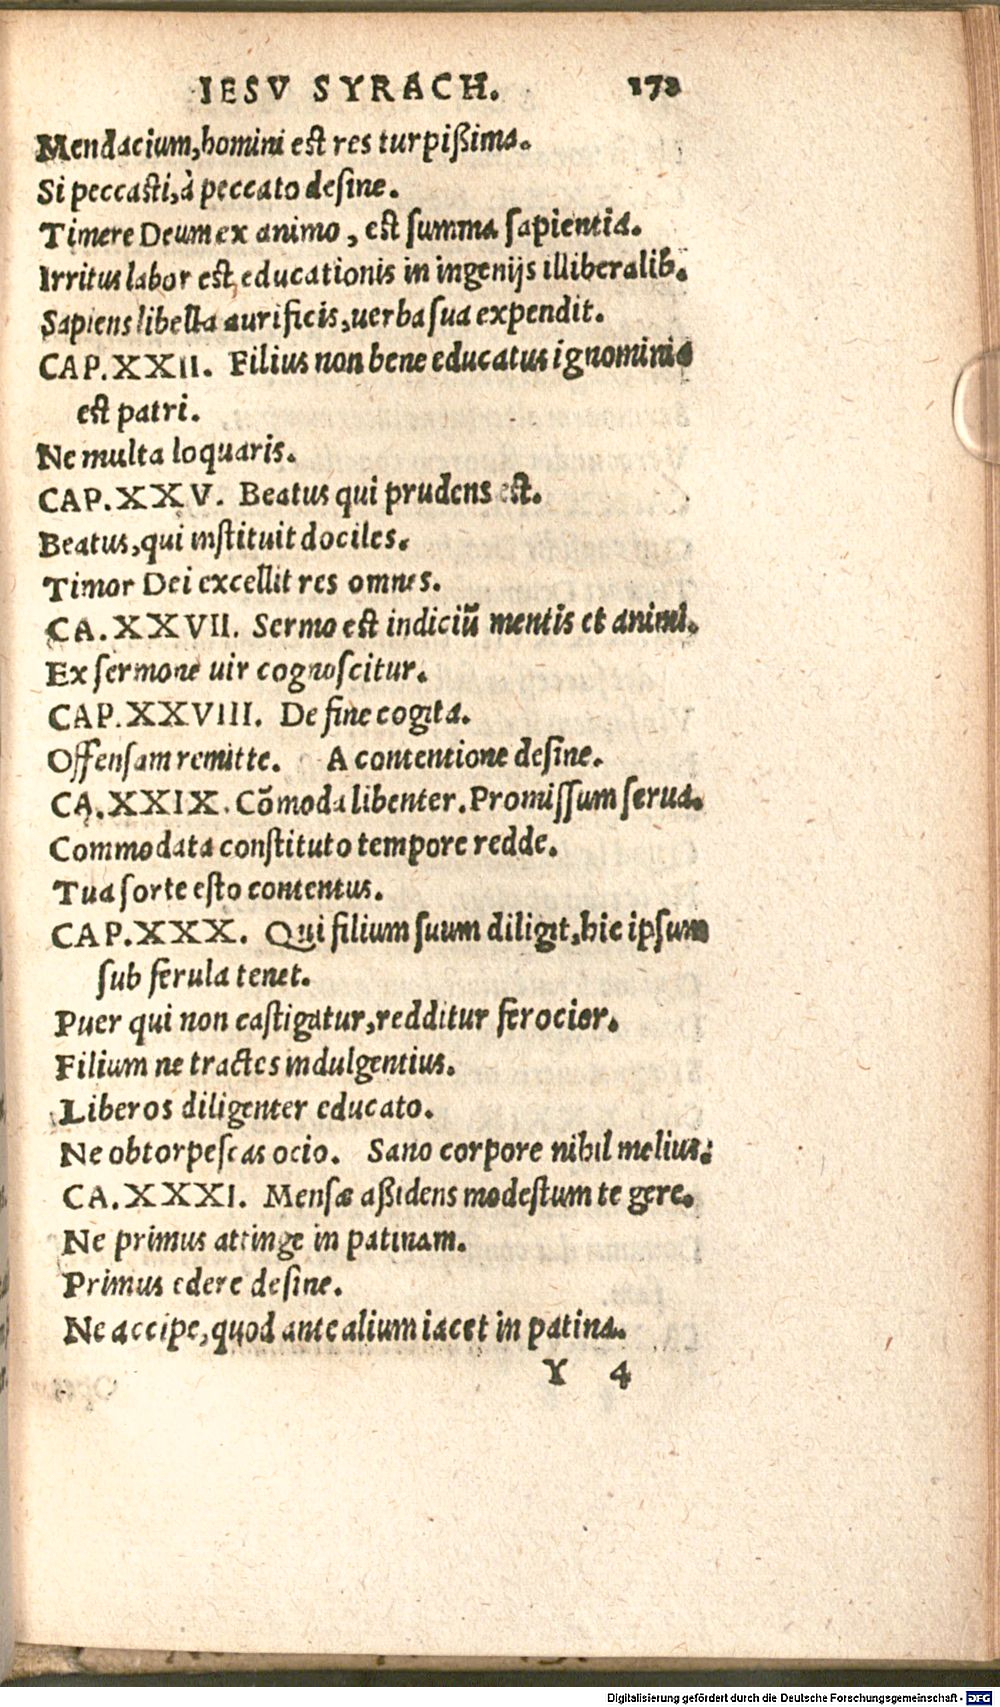 IESV SYRACH. 172
Mendacium, homini est res turpißima.
Si peccasti, à peccato desine.
Timere Deum ex animo, est summa sapientia.
Irritus labor est, educationis in ingenijs illiberalib.
Sapiens libella aurificis, uerba sua expendit.
CAP. XXII. Filius non bene educatus ignominia
est patri.
Ne multa loquaris.
CAP. XXV. Beatus qui prudens est.
Beatus, qui instituit dociles.
Timor Dei excellit res omnes.
CA. XXVII. Sermo est indiciũ mentis et animi.
Ex sermone uir cognoscitur.
CAP. XXVIII. De fine cogita.
Offensam remitte. A contentione desine.
CA. XXIX. Cõmoda libenter. Promissum serua.
Commodata constituto tempore redde.
Tua sorte esto contentus.
CAP. XXX. Qui filium suum diligit, hic ipsum
sub ferula tenet.
Puer qui non castigatur, redditur ferocior.
Filium ne tractes indulgentius.
Liberos diligenter educato.
Ne obtorpescas ocio. Sano corpore nihil melius:
CA. XXXI. Mensæ aßidens modestum te gere.
Ne primus attinge in patinam.
Primus edere desine.
Ne accipe, quod ante alium iacet in patina.
Y 4
Digitalisierung gefördert durch die Deutsche Forschungsgemeinschaft - DFG